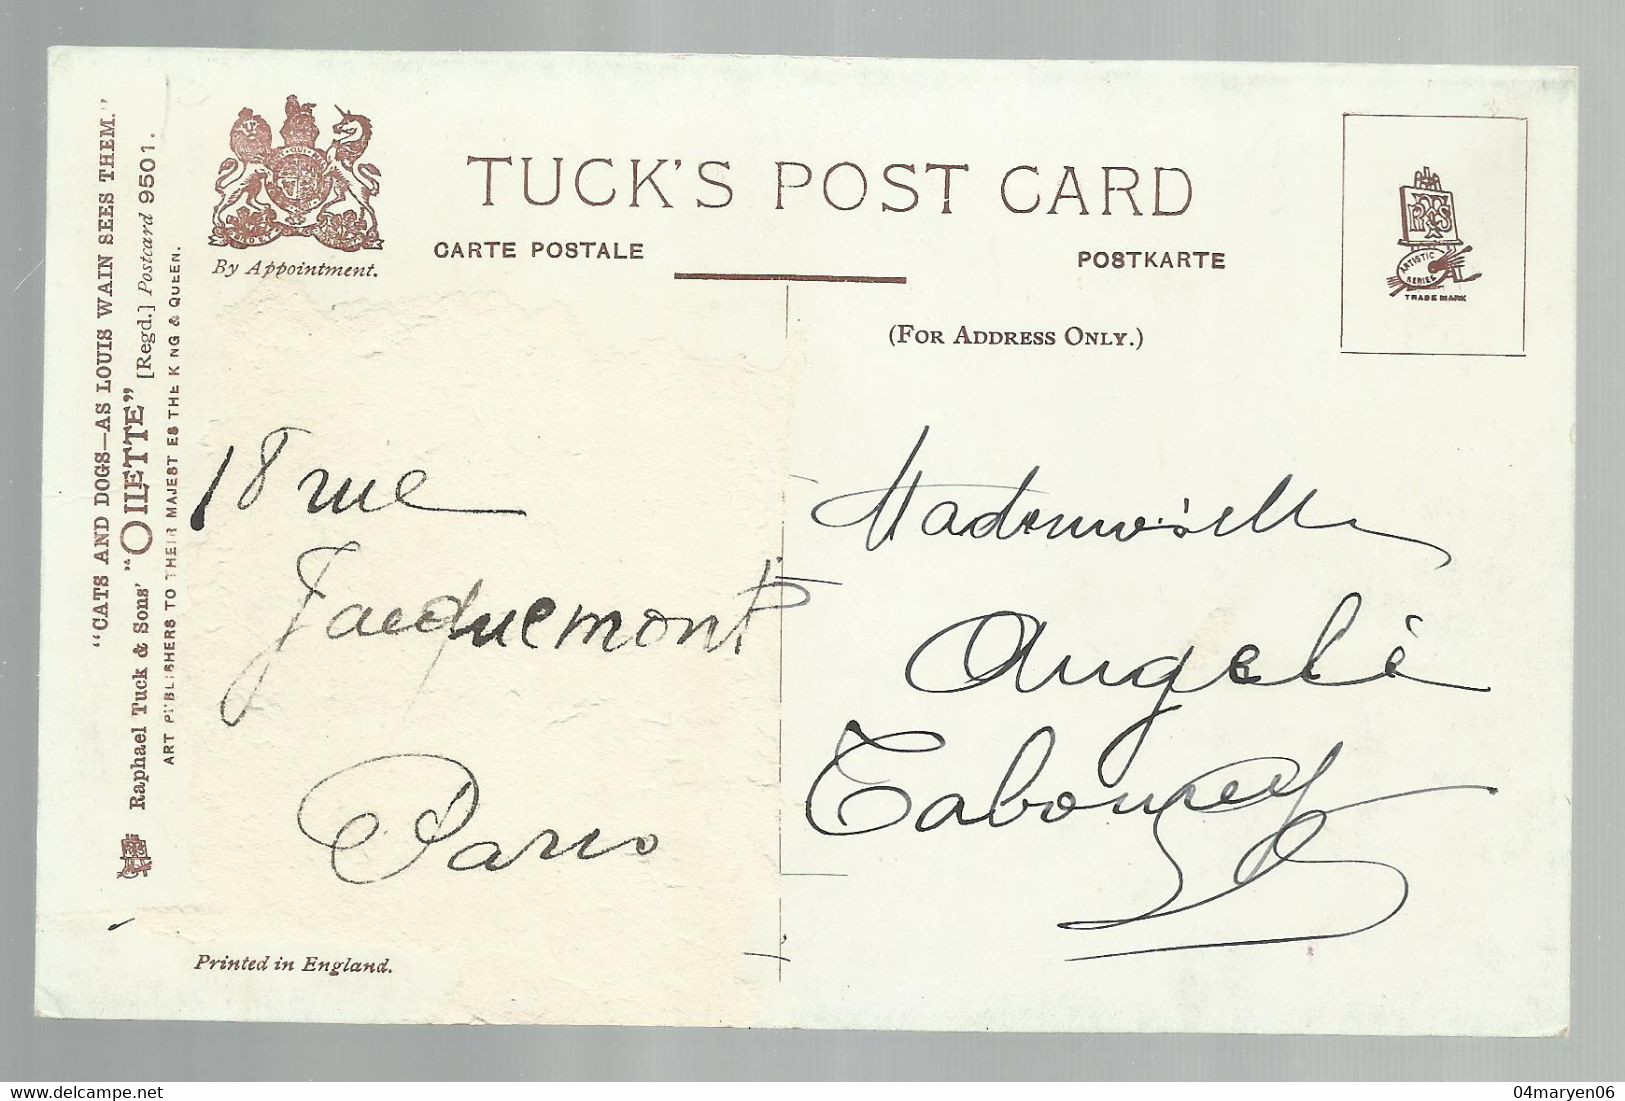 "CATS AND DOGS—AS LOUIS WAIN SEES THEM."
Raphael Tuck & Sons' "OILETTE" [Regd.] Postcard 9501.
ART PUBLISHERS TO THEIR MAJESTIES THE KING & QUEEN.
By Appointment.
TUCK'S POST CARD
CARTE POSTALE
POSTKARTE
(FOR ADDRESS ONLY.)
ARTISTIC
SERIES
TRADE MARK
18 rue
Jacquemont
Paris
Mademoiselle
Angele
Printed in England.
delcampe.net
04maryen06